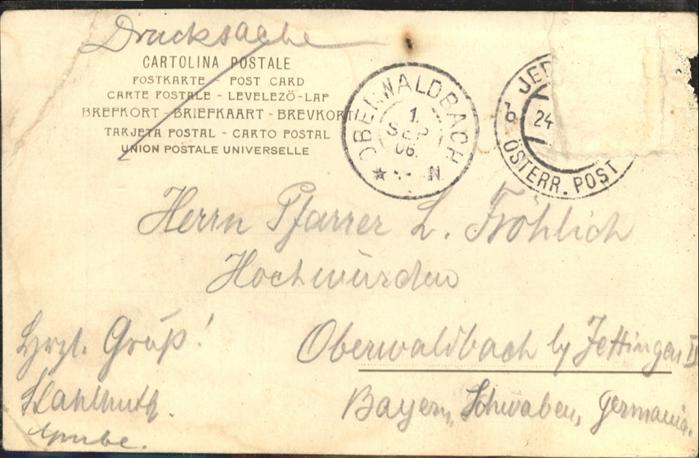 Drucksache
CARTOLINA POSTALE
POSTKARTE - POST CARD
CARTE POSTALE - LEVELEZÖ-LAP
BREFKORT - BRIEFKAART - BREVKORT
TARJETA POSTAL - CARTO POSTAL
UNION POSTALE UNIVERSELLE
OBERWALDBACH
1.
SEP
06.
N
JER
24
ÖSTERR. POST
Herrn Pfarrer L. Fröhlich
Hochwürden
Oberwaldbach by Jettingen
Bayern, Schwaben, Germania.
Hrzl. Gruß!